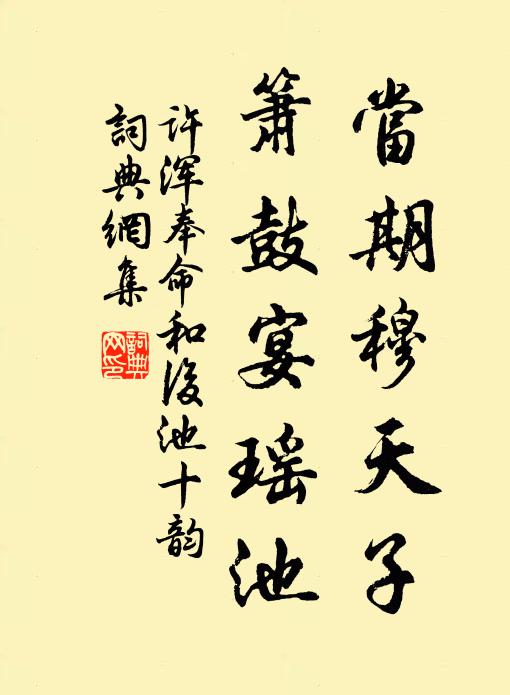 當期穆天子
簫鼓宴瑶池
许浑奉命和後池十韵
詞典網集
詞典网印